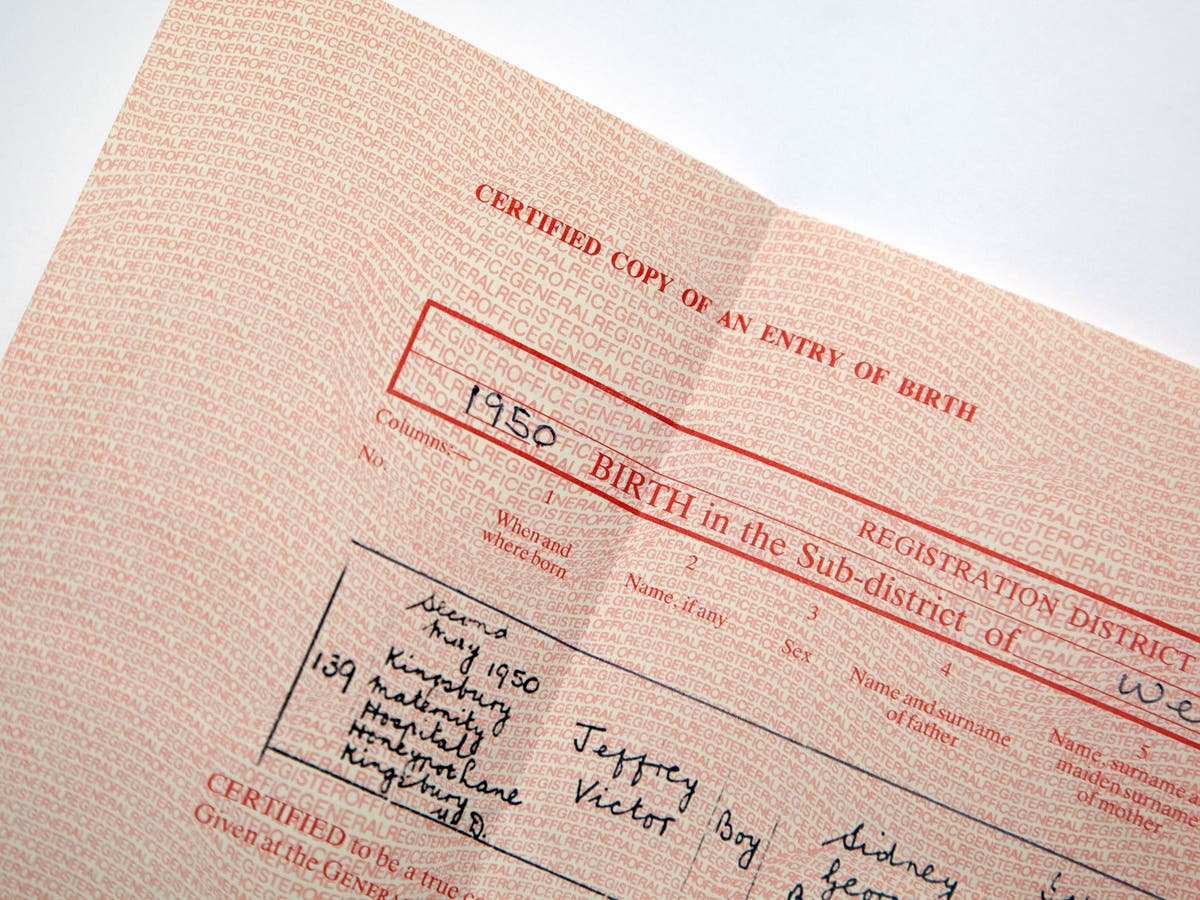 CERTIFIED COPY OF AN ENTRY OF BIRTH
REGISTRATION DISTRICT
1950 BIRTH in the Sub-district of We
Columns:— 1 2 3 4 5
No. When and where born Name, if any Sex Name and surname of father Name, surname maiden surname of mother
139
Second
May 1950
Kingsbury
Maternity
Hospital
Kingsbury
U.D.
Jeffrey
Victor
Boy
Sidney
CERTIFIED to be a true
Given at the GENERA
GENERALREGISTEROFFICE